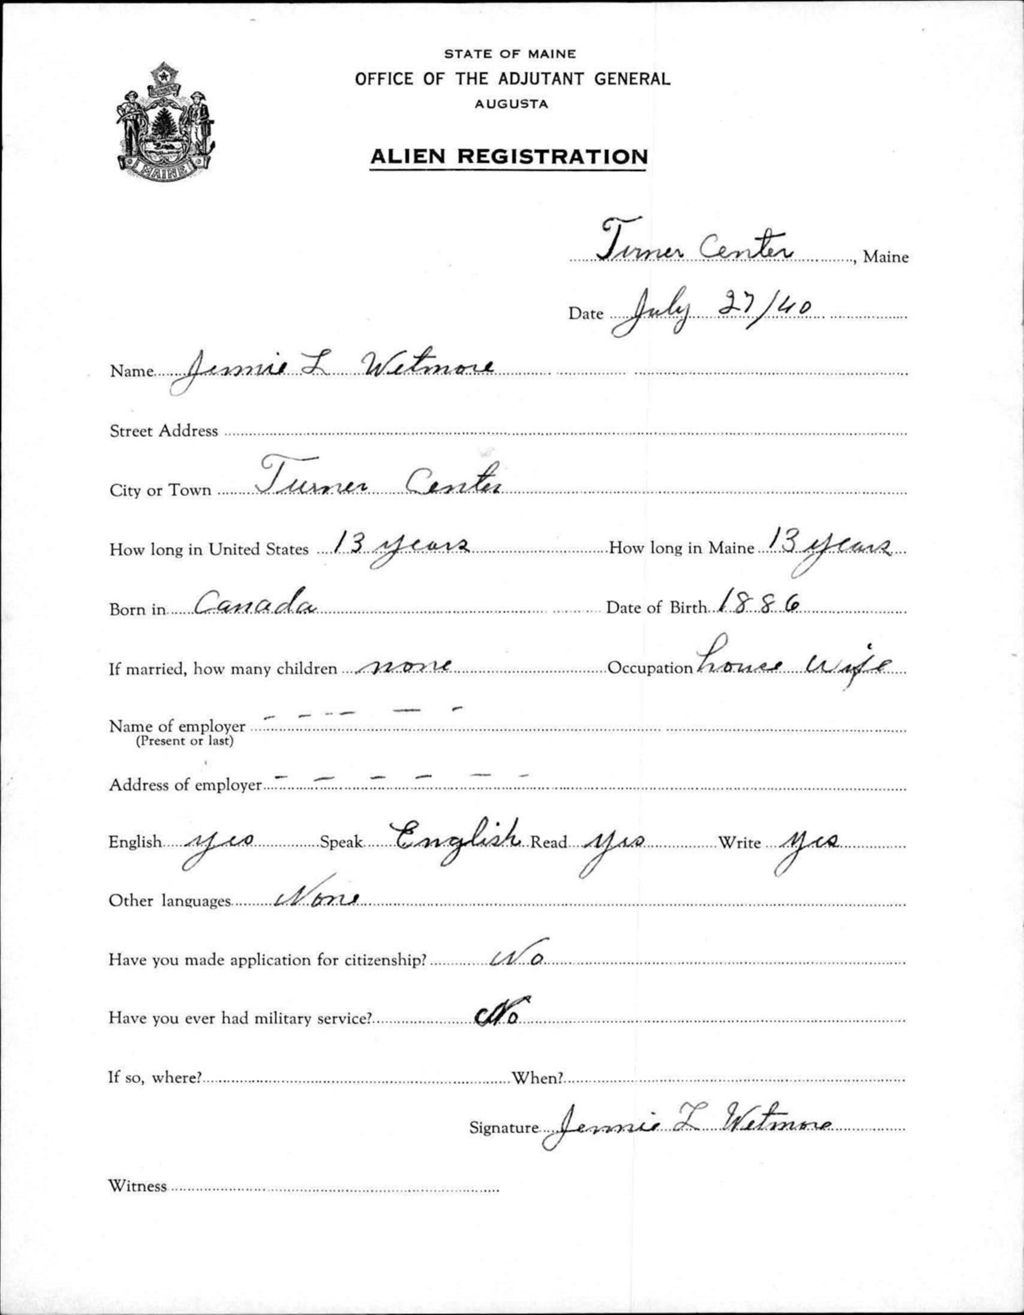 STATE OF MAINE
OFFICE OF THE ADJUTANT GENERAL
AUGUSTA
ALIEN REGISTRATION
MAINE
Turner Center, Maine
Date July 27/40
Name Jennie L Wetmore
Street Address
City or Town Turner Center
How long in United States 13 years How long in Maine 13 years
Born in Canada Date of Birth 1886
If married, how many children none Occupation house wife
Name of employer - - - - - -
(Present or last)
Address of employer - - - - - -
English yes Speak English Read yes Write yes
Other languages None
Have you made application for citizenship? No
Have you ever had military service? No
If so, where? When?
Signature Jennie L Wetmore
Witness